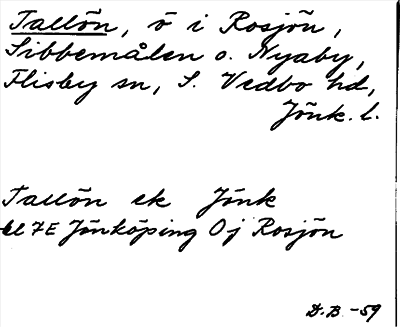 Tallön, ö i Rosjön,
Sibbemålen o. Nyaby,
Flisby sn, S. Vedbo hd,
Jönk. l.
Tallön ek Jönk
bl 7E Jönköping Oj Rosjön
D.B. -59